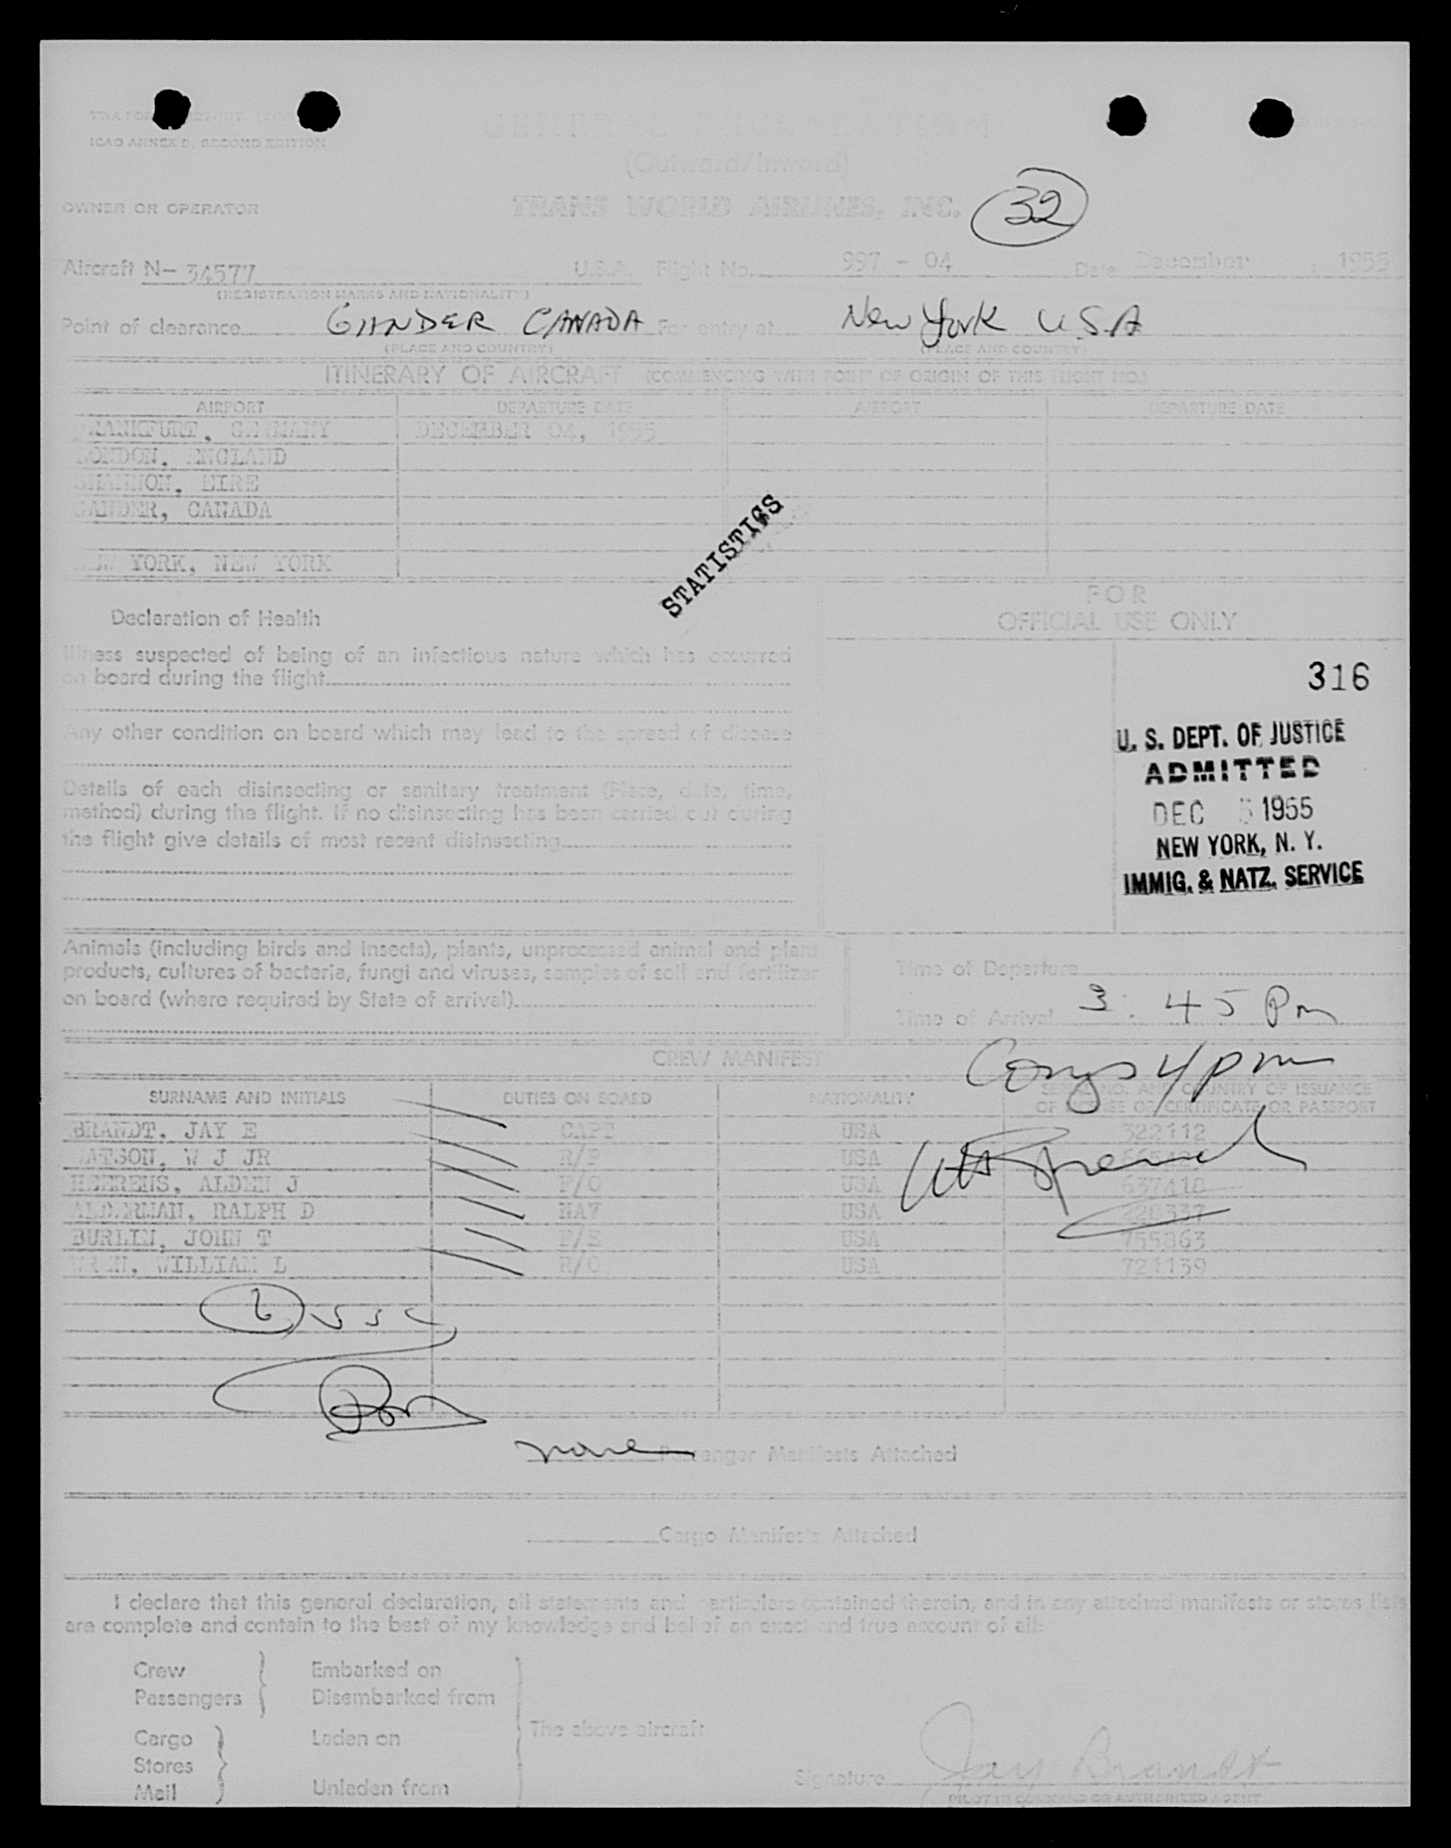 ICAO ANNEX 9, SECOND EDITION
GENERAL DECLARATION
(Outward/Inward)
OWNER OR OPERATOR TRANS WORLD AIRLINES, INC. 32
Aircraft N- 34577 U.S.A. Flight No. 997 - 04 Date December 1955
(REGISTRATION MARKS AND NATIONALITY)
Point of clearance GANDER CANADA For entry at New York U.S.A
(PLACE AND COUNTRY) (PLACE AND COUNTRY)
ITINERARY OF AIRCRAFT (COMMENCING WITH PORT OF ORIGIN OF THIS FLIGHT NO.)
AIRPORT DEPARTURE DATE AIRPORT DEPARTURE DATE
FRANKFURT, GERMANY DECEMBER 04, 1955
LONDON, ENGLAND
SHANNON, EIRE
GANDER, CANADA
NEW YORK, NEW YORK
STATISTICS
Declaration of Health
FOR
OFFICIAL USE ONLY
Illness suspected of being of an infectious nature which has occurred
on board during the flight
Any other condition on board which may lead to the spread of disease
Details of each disinsecting or sanitary treatment (Place, date, time,
method) during the flight. If no disinsecting has been carried out during
the flight give details of most recent disinsecting
316
U. S. DEPT. OF JUSTICE
ADMITTED
DEC 5 1955
NEW YORK, N. Y.
IMMIG. & NATZ. SERVICE
Animals (including birds and insects), plants, unprocessed animal and plant
products, cultures of bacteria, fungi and viruses, samples of soil and fertilizer
on board (where required by State of arrival)
Time of Departure
Time of Arrival 3:45 Pm
CREW MANIFEST
4 pm
SURNAME AND INITIALS DUTIES ON BOARD NATIONALITY SERIAL NO. AND COUNTRY OF ISSUANCE
OF LICENSE OR CERTIFICATE OR PASSPORT
BRANDT, JAY E CAPT USA 322112
WATSON, W J JR R/P USA
ALDEN J F/O USA 637410
ALDERMAN, RALPH D NAV USA
BURLIN, JOHN T F/E USA 755863
WILLIAM L R/O USA 721159
6 USC
none Passenger Manifests Attached
Cargo Manifests Attached
I declare that this general declaration, all statements and particulars contained therein, and in any attached manifests or stores lists
are complete and contain to the best of my knowledge and belief an exact and true account of all:
Crew Embarked on
Passengers Disembarked from
The above aircraft
Cargo Laden on
Stores
Mail Unladen from
Signature Jay Brandt
PILOT IN COMMAND OR AUTHORIZED AGENT